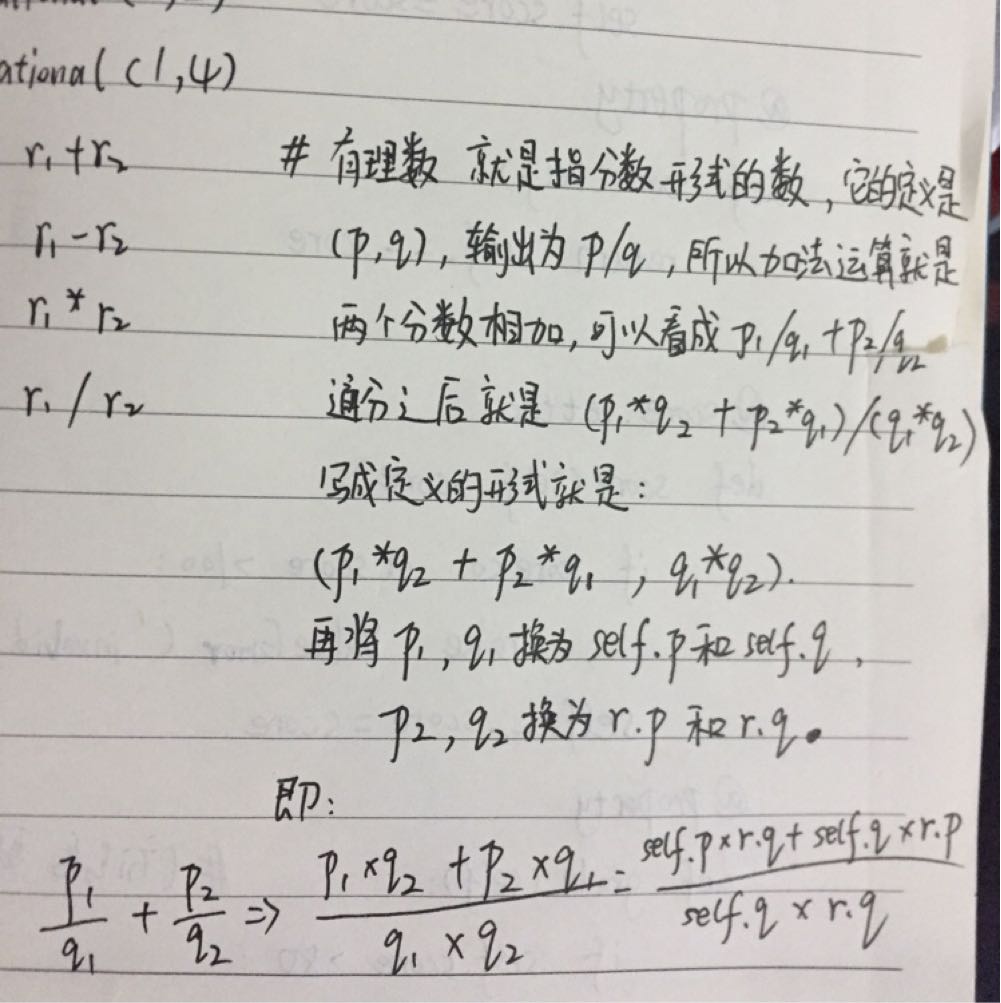 ational (1,4)
r₁+r₂ # 有理数 就是指分数形式的数，它的定义是
r₁-r₂ (p,q)，输出为 p/q，所以加法运算就是
r₁*r₂ 两个分数相加，可以看成 p₁/q₁+p₂/q₂
r₁/r₂ 通分之后就是 (p₁*q₂+p₂*q₁)/(q₁*q₂)
写成定义的形式就是：
(p₁*q₂+p₂*q₁, q₁*q₂).
再将 p₁,q₁ 换为 self.p 和 self.q，
p₂,q₂ 换为 r.p 和 r.q。
即：
p₁/q₁ + p₂/q₂ ⇒ (p₁×q₂+p₂×q₁)/(q₁×q₂) = (self.p×r.q+self.q×r.p)/(self.q×r.q)